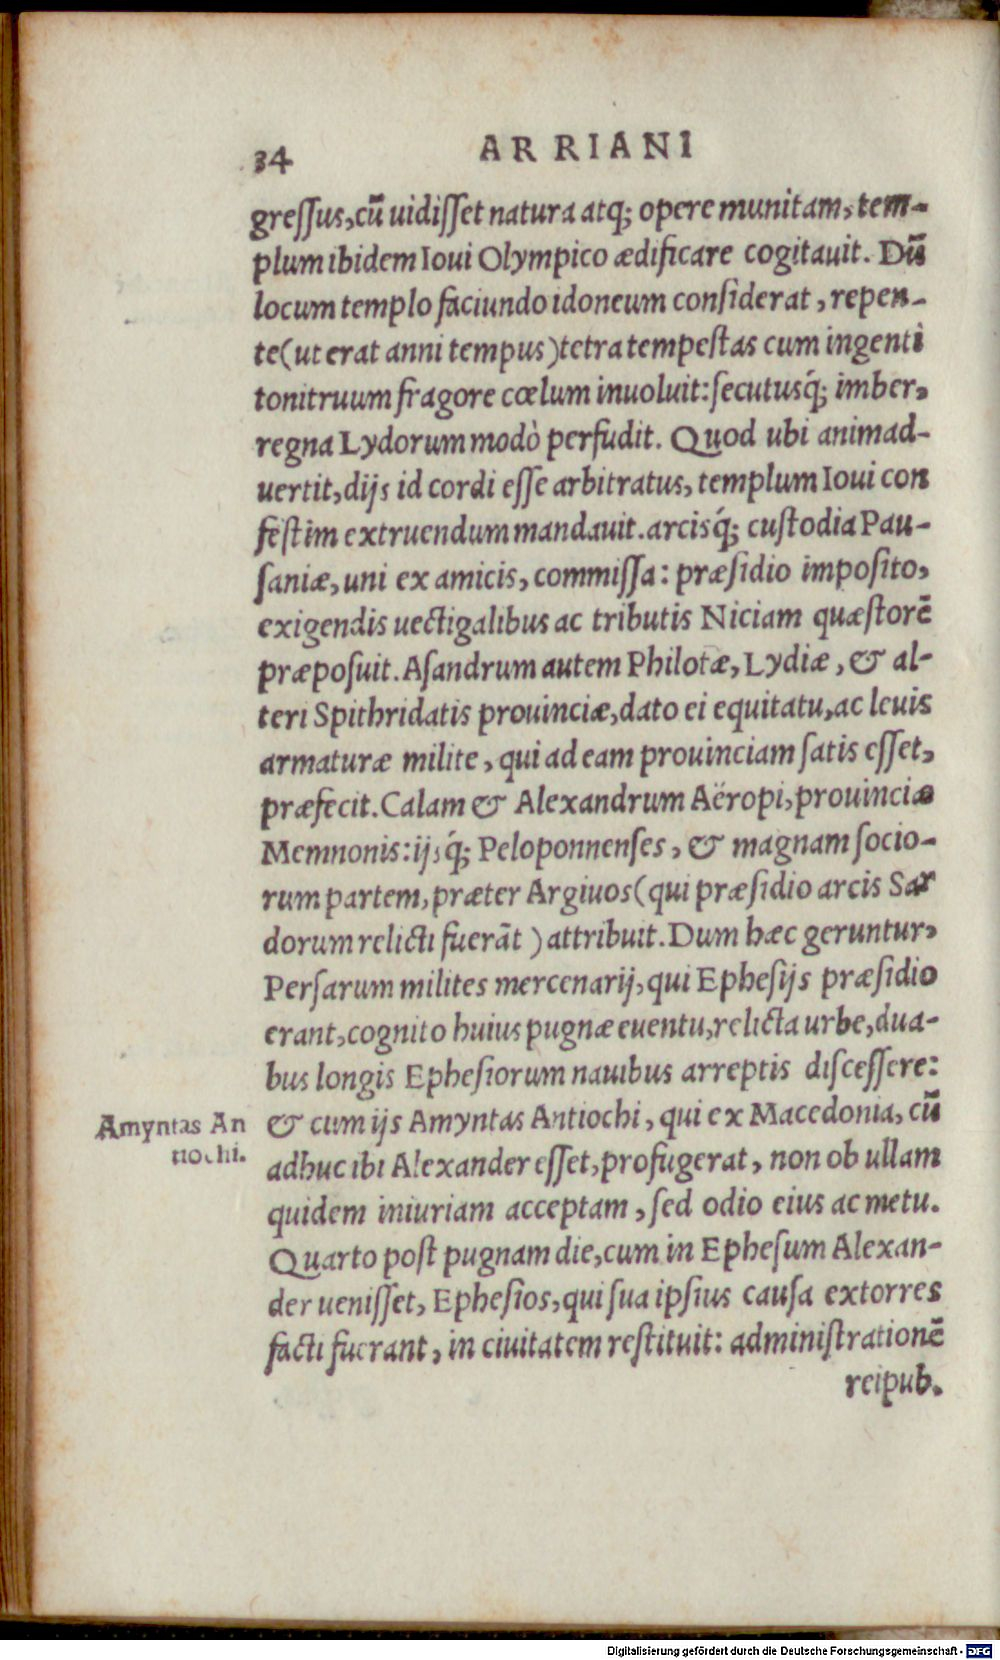 34 ARRIANI
greſſus, cū uidiſſet natura atq; opere munitam, tem-
plum ibidem Ioui Olympico ædificare cogitauit. Dū
locum templo faciundo idoneum conſiderat, repen-
te (ut erat anni tempus) tetra tempeſtas cum ingenti
tonitruum fragore cœlum inuoluit: ſecutusq́; imber,
regna Lydorum modò perfudit. Quod ubi animad-
uertit, dijs id cordi eſſe arbitratus, templum Ioui con
feſtim extruendum mandauit. arcisq́; cuſtodia Pau-
ſaniæ, uni ex amicis, commiſſa: præſidio impoſito,
exigendis uectigalibus ac tributis Niciam quæſtorē
præpoſuit. Aſandrum autem Philotæ, Lydiæ, & al-
teri Spithridatis prouinciæ, dato ei equitatu, ac leuis
armaturæ milite, qui ad eam prouinciam ſatis eſſet,
præfecit. Calam & Alexandrum Aëropi, prouinciæ
Memnonis: ijsq́; Peloponnenſes, & magnam ſocio-
rum partem, præter Argiuos (qui præſidio arcis Sar
dorum relicti fuerāt) attribuit. Dum hæc geruntur,
Perſarum milites mercenarij, qui Epheſijs præſidio
erant, cognito huius pugnæ euentu, relicta urbe, dua-
bus longis Epheſiorum nauibus arreptis diſceſſere:
& cum ijs Amyntas Antiochi, qui ex Macedonia, cū
adhuc ibi Alexander eſſet, profugerat, non ob ullam
quidem iniuriam acceptam, ſed odio eius ac metu.
Quarto poſt pugnam die, cum in Epheſum Alexan-
der ueniſſet, Epheſios, qui ſua ipſius cauſa extorres
facti fuerant, in ciuitatem reſtituit: adminiſtrationē
reipub.
Amyntas An
tiochi.
Digitalisierung gefördert durch die Deutsche Forschungsgemeinschaft - DFG